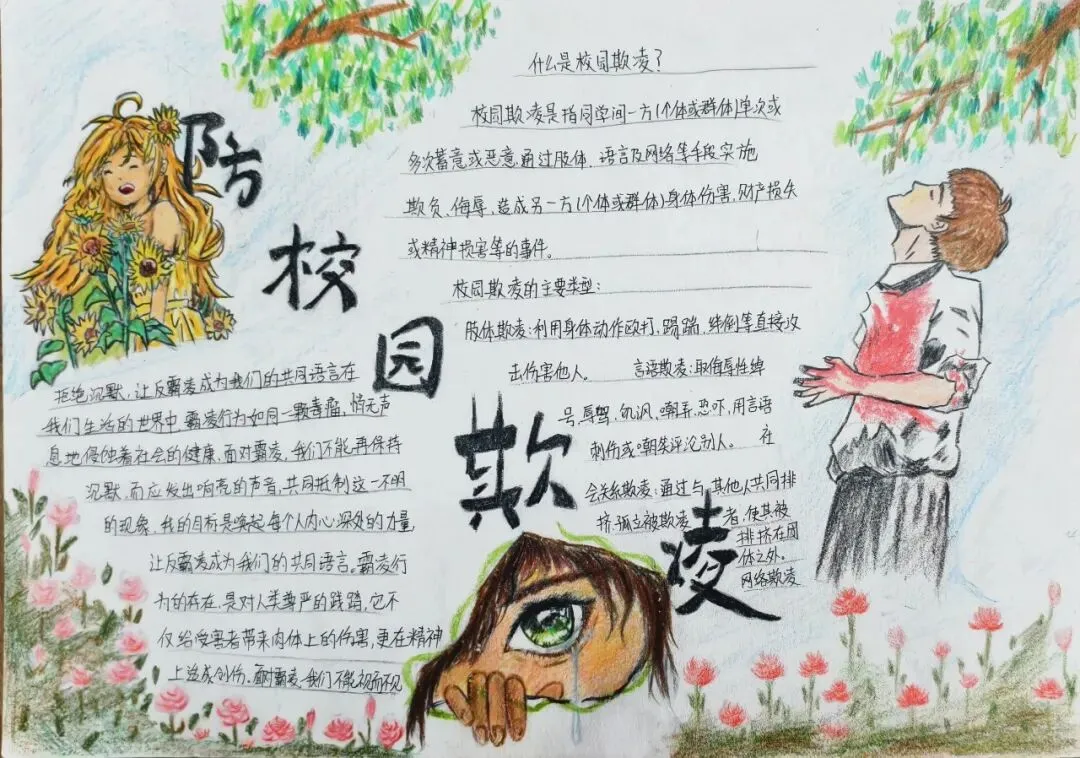 防校园欺凌
什么是校园欺凌？
校园欺凌是指同学间一方(个体或群体)单次或
多次蓄意或恶意通过肢体、语言及网络等手段实施
欺负、侮辱、造成另一方(个体或群体)身体伤害,财产损失
或精神损害等的事件。
校园欺凌的主要类型：
肢体欺凌：利用身体动作殴打,踢踹,绊倒等直接攻
击伤害他人。 言语欺凌：取侮辱性绰
号,辱骂,讥讽,嘲弄,恐吓,用言语
刺伤或嘲笑评论别人。 在
会关系欺凌：通过与,其他人共同排
挤,孤立被欺凌 者,使其被
排挤在团
体之外。
网络欺凌
拒绝沉默,让反霸凌成为我们的共同语言在
我们生活的世界中,霸凌行为如同一颗毒瘤,悄无声
息地侵蚀着社会的健康,面对霸凌,我们不能再保持
沉默,而应发出响亮的声音,共同抵制这一不明
的现象,我的目标是唤起每个人内心深处的力量
让反霸凌成为我们的共同语言。霸凌行
为的存在,是对人类尊严的践踏,它不
仅给受害者带来肉体上的伤害,更在精神
上造成创伤。面对霸凌,我们不能视而不见